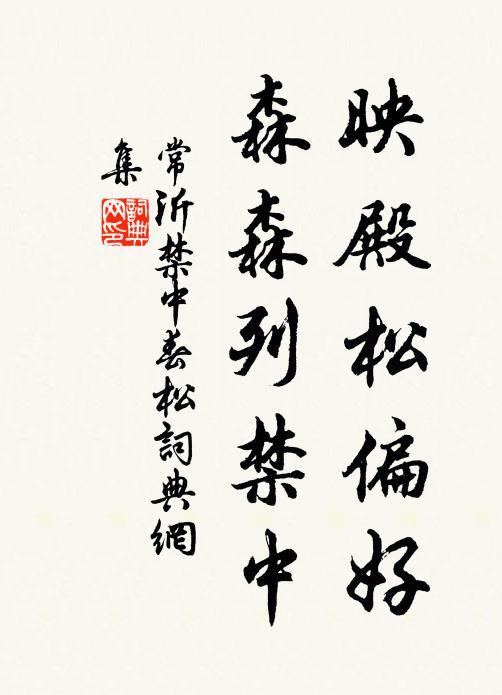 映殿松偏好
森森列禁中
常沂禁中春松詞典網
集
詞典
网印